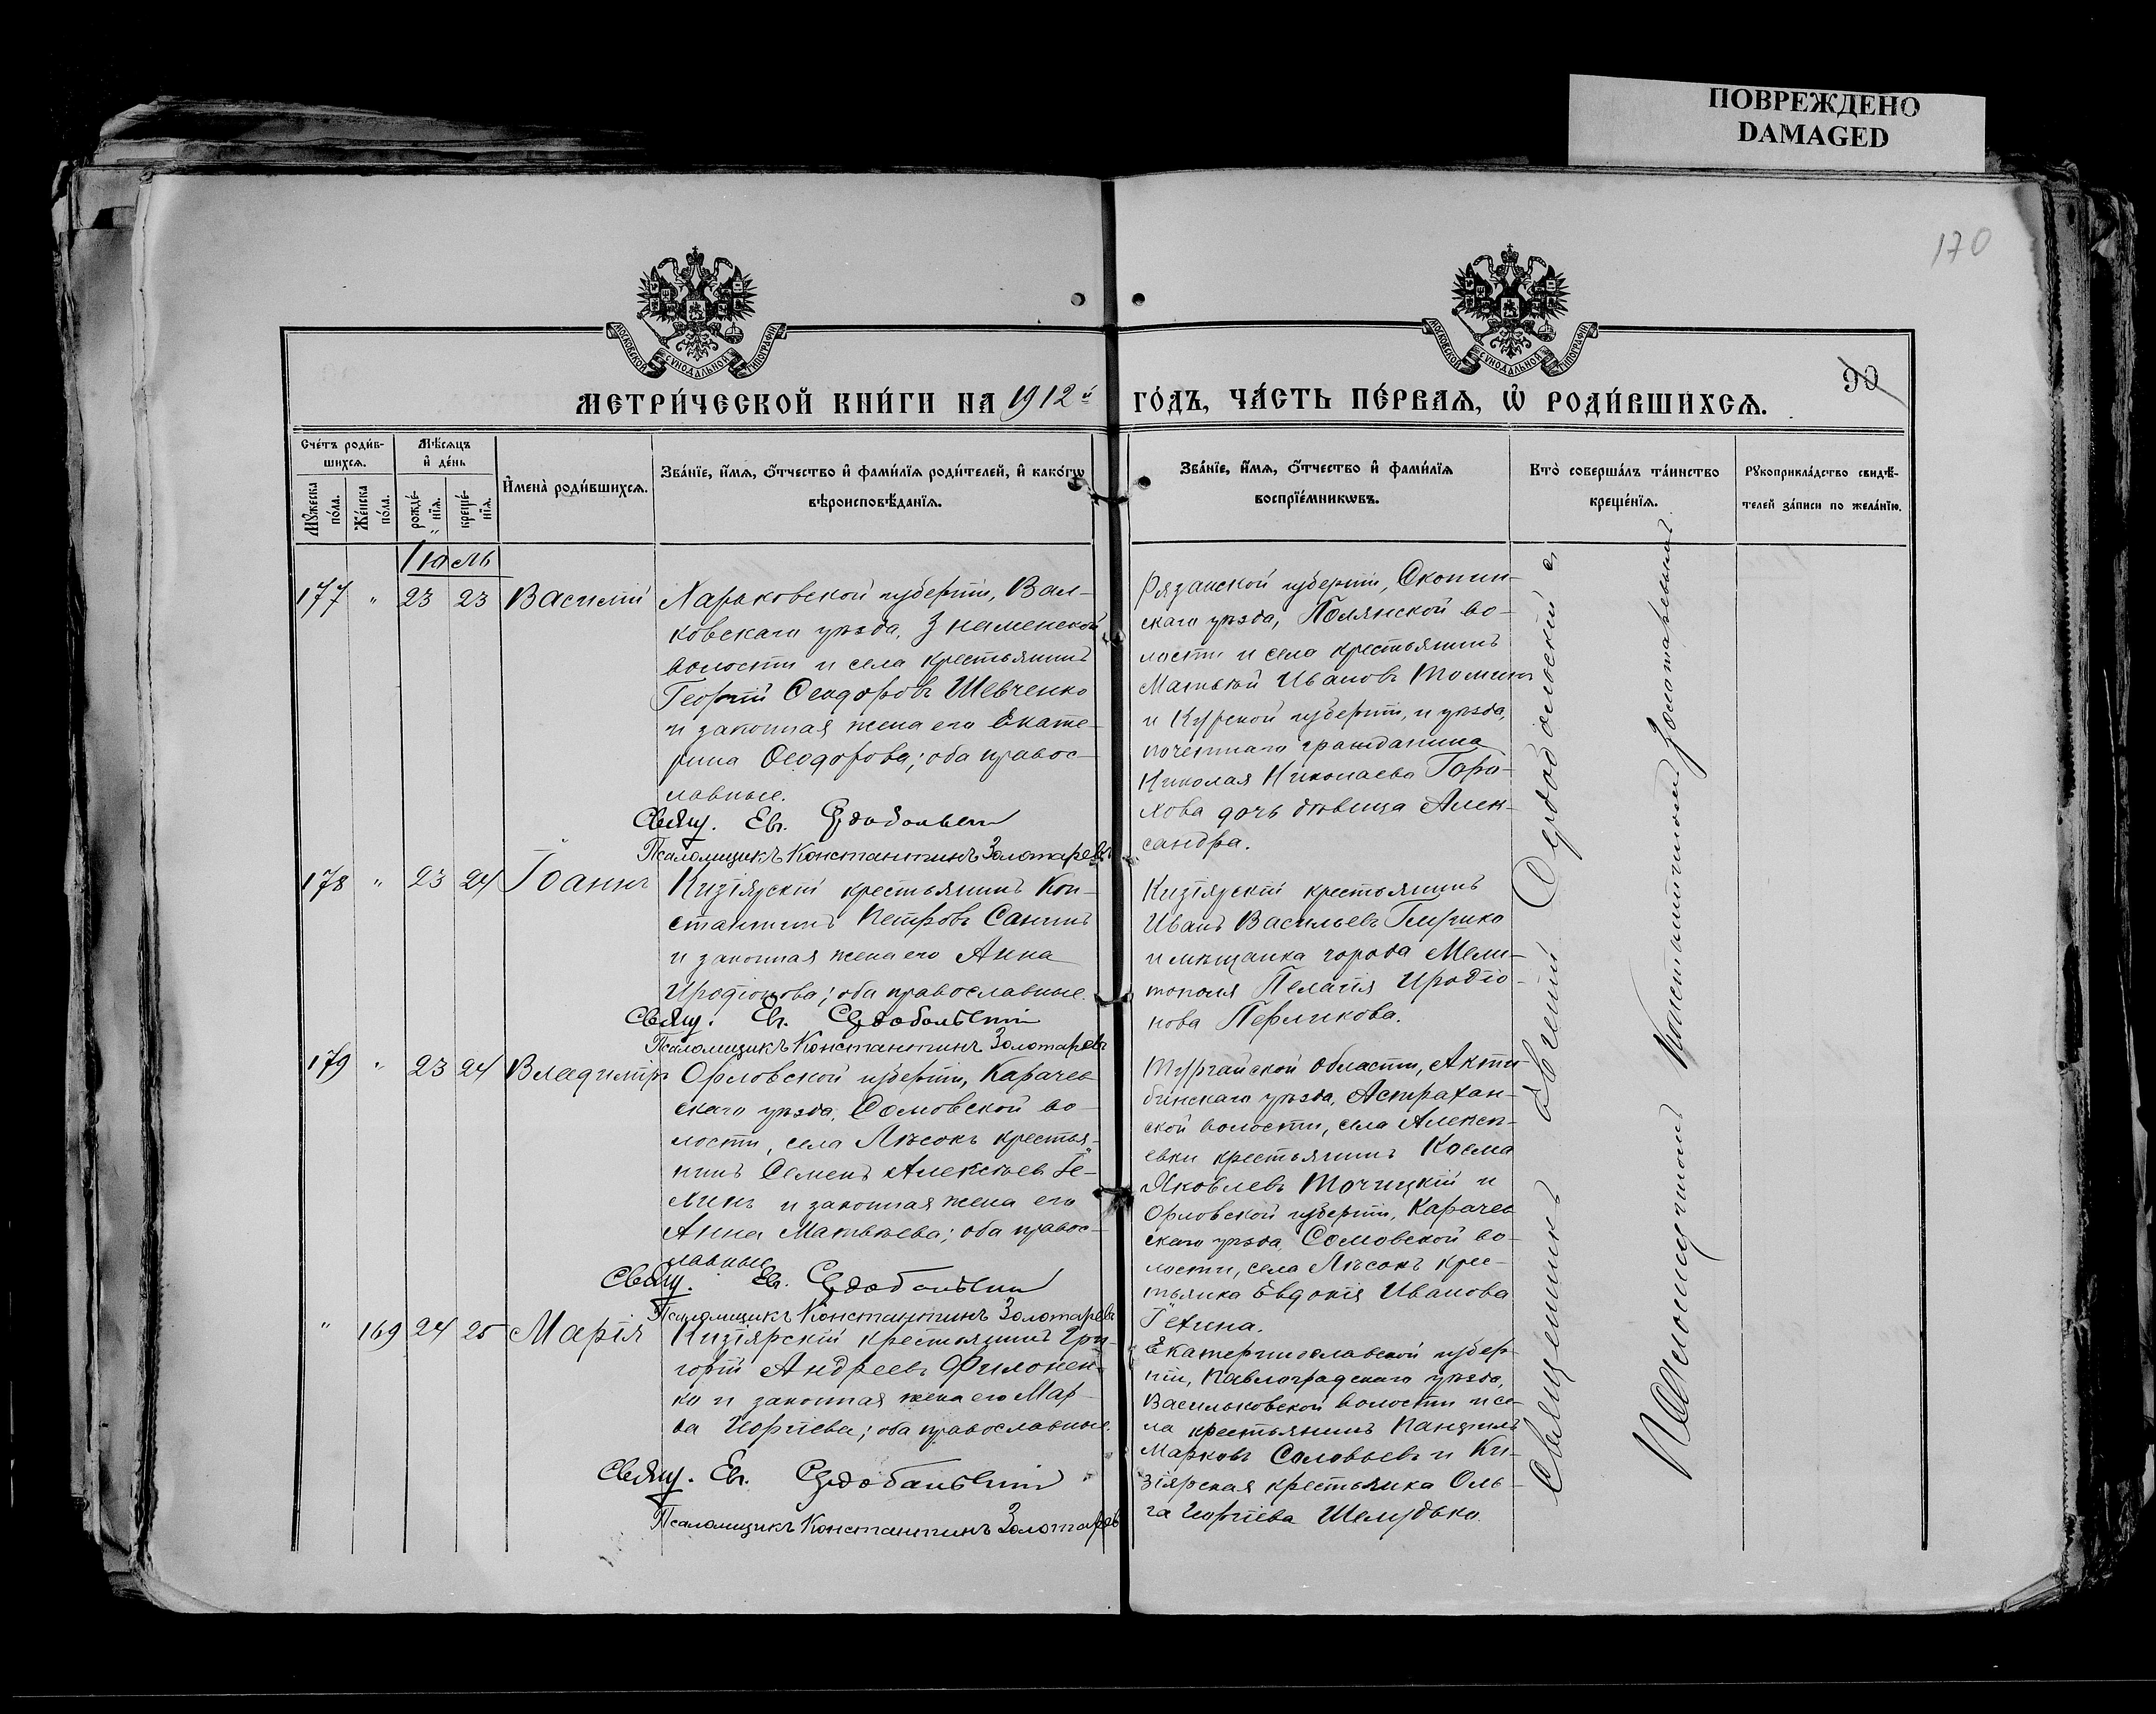 ПОВРЕЖДЕНО
DAMAGED
170
МОСКОВСКОЙ СѴНОДАЛЬНОЙ ТИПОГРАФІИ
МОСКОВСКОЙ СѴНОДАЛЬНОЙ ТИПОГРАФІИ
90
МЕТРИ́ЧЕСКОЙ КНИ́ГИ НА 1912й ГО́ДЪ, ЧА́СТЬ ПЕ́РВАЯ, Ѡ РОДИ́ВШИХСЯ.
Сче́тъ роди́в-
шихся.
Мꙋ́жеска по́ла.
Же́нска по́ла.
Мѣ́сяцъ и де́нь
рожде́-
нія.
креще́-
нія.
Имена̀ роди́вшихся.
Зва́ніе, и́мя, о́тчество и фами́лія роди́телей, и како́гѡ
вѣроисповѣ́данія.
Зва́ніе, и́мя, о́тчество и фами́лія
воспріе́мникѡвъ.
Кто̀ соверша́лъ та́инство
креще́нія.
Рꙋкоприкла́дство свидѣ́-
телей за́писи по жела́нію.
Іюль
177 " 23 23 Василій
Харьковской губерніи, Вал-
ковскаго уѣзда, Знаменской
волости и села крестьянинъ
Георгій Ѳеодоровъ Шевченко
и законная жена его Екате-
рина Ѳеодорова; оба правос-
лавные.
Свящ. Ев. Сердобольскій
Псаломщикъ Константинъ Золотаревъ
Рязанской губерніи, Скопин-
скаго уѣзда, Полянской во-
лости и села крестьянинъ
Матвѣй Ивановъ Томинъ
и Курской губерніи, и уѣзда,
почетнаго гражданина
Николая Николаева Горо-
хова дочь дѣвица Алек-
сандра.
178 " 23 24 Іоаннъ
Кизіярскій крестьянинъ Кон-
стантинъ Петровъ Санинъ
и законная жена его Анна
Иродіонова; оба православные.
Свящ. Ев. Сердобольскій
Псаломщикъ Константинъ Золотаревъ
Кизіярскій крестьянинъ
Иванъ Васильевъ
и мѣщанка города Мели-
тополя Пелагія Иродіо-
нова Перликова.
179 " 23 24 Владиміръ
Орловской губерніи, Карачев
скаго уѣзда, Сомовской во-
лости, села Лѣсокъ крестья-
нинъ Семенъ Алексѣевъ Ге-
линъ и законная жена его
Анна Матвѣева; оба правос-
лавные
Свящ. Ев. Сердобольскій
Псаломщикъ Константинъ Золотаревъ
Тургайской области, Актю
бинскаго уѣзда, Астрахан-
ской волости, села Алексе-
евки крестьянинъ Косма
Яковлевъ Точицкій и
Орловской губерніи, Карачев
скаго уѣзда, Сомовской во-
лости, села Лѣсокъ крес-
тьянка Евдокія Иванова
Гелина.
" 169 24 25 Марія
Кизіярскій крестьянинъ Гри-
горій Андреевъ Филонен-
ко и законная жена его Мар-
ѳа Георгіева; оба православные.
Свящ. Ев. Сердобольскій
Псаломщикъ Константинъ Золотаревъ
Екатеринославской губер-
ніи, Павлоградскаго уѣзда,
Васильковской волости и се-
ла крестьянинъ
Марковъ Соловьевъ и Ки-
зіярская крестьянка Оль-
га Георгіева Шелудько.
Священникъ Евгеній Сердобольскій съ
Псаломщикомъ Константиномъ Золотаревымъ